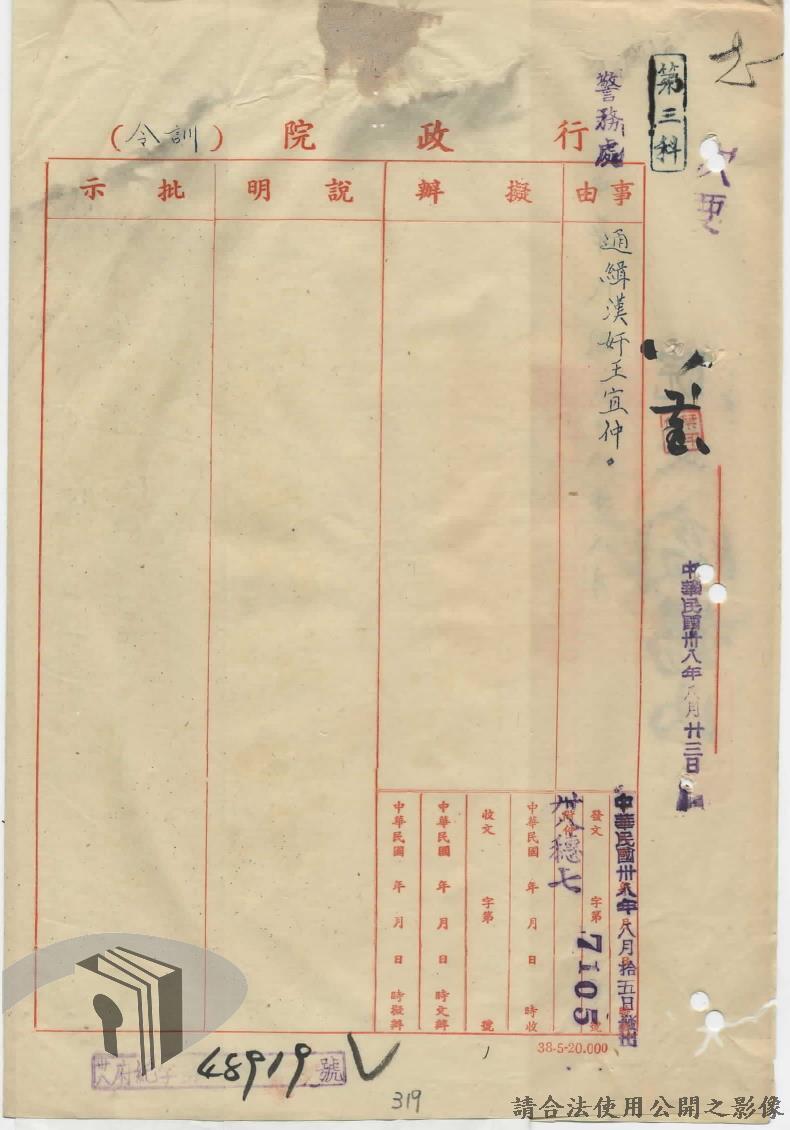 第三科
警務處
行政院(訓令)
事由
擬辦
說明
批示
通緝漢奸王宜仲。
中華民國卅八年八月廿三日
中華民國卅八年八月拾五日發出
發文 字第 號
卅八穩七
7105
中華民國 年 月 日 時收
收文 字第 號
中華民國 年 月 日 時交辦
中華民國 年 月 日 時擬辦
38-5-20.000
48919 號
319
請合法使用公開之影像